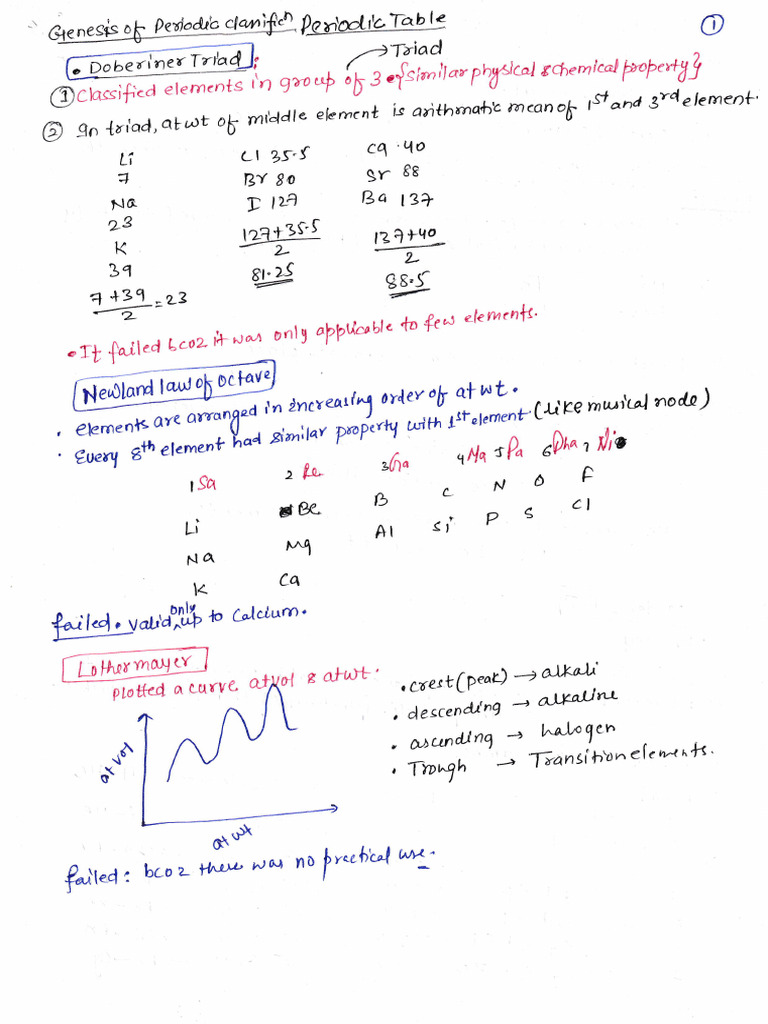 Genesis of Periodic Classificn Periodic Table
1
• Doberiner Triad :
→ Triad
① Classified elements in group of 3 {similar physical & chemical property}
② In triad, at wt of middle element is arithmatic mean of 1st and 3rd element.
Li Cl 35.5 Ca 40
7 Br 80 Sr 88
Na I 127 Ba 137
23 127+35.5 137+40
K 2 2
39 81.25 88.5
7+39
2
=23
• It failed bcoz it was only applicable to few elements.
Newland law of octave
• elements are arranged in increasing order of at wt.
• Every 8th element had similar property with 1st element (like musical node)
1 Sa 2 Re 3 Ga 4 Ma 5 Pa 6 Dha 7 Ni
Li Be B C N O F
Na Mg Al Si P S Cl
K Ca
failed. valid only up to Calcium.
Lothermayer
Plotted a curve at vol & at wt.
• crest (peak) → alkali
• descending → alkaline
• ascending → halogen
• Trough → Transition elements.
at vol
at wt
failed: bcoz there was no practical use.